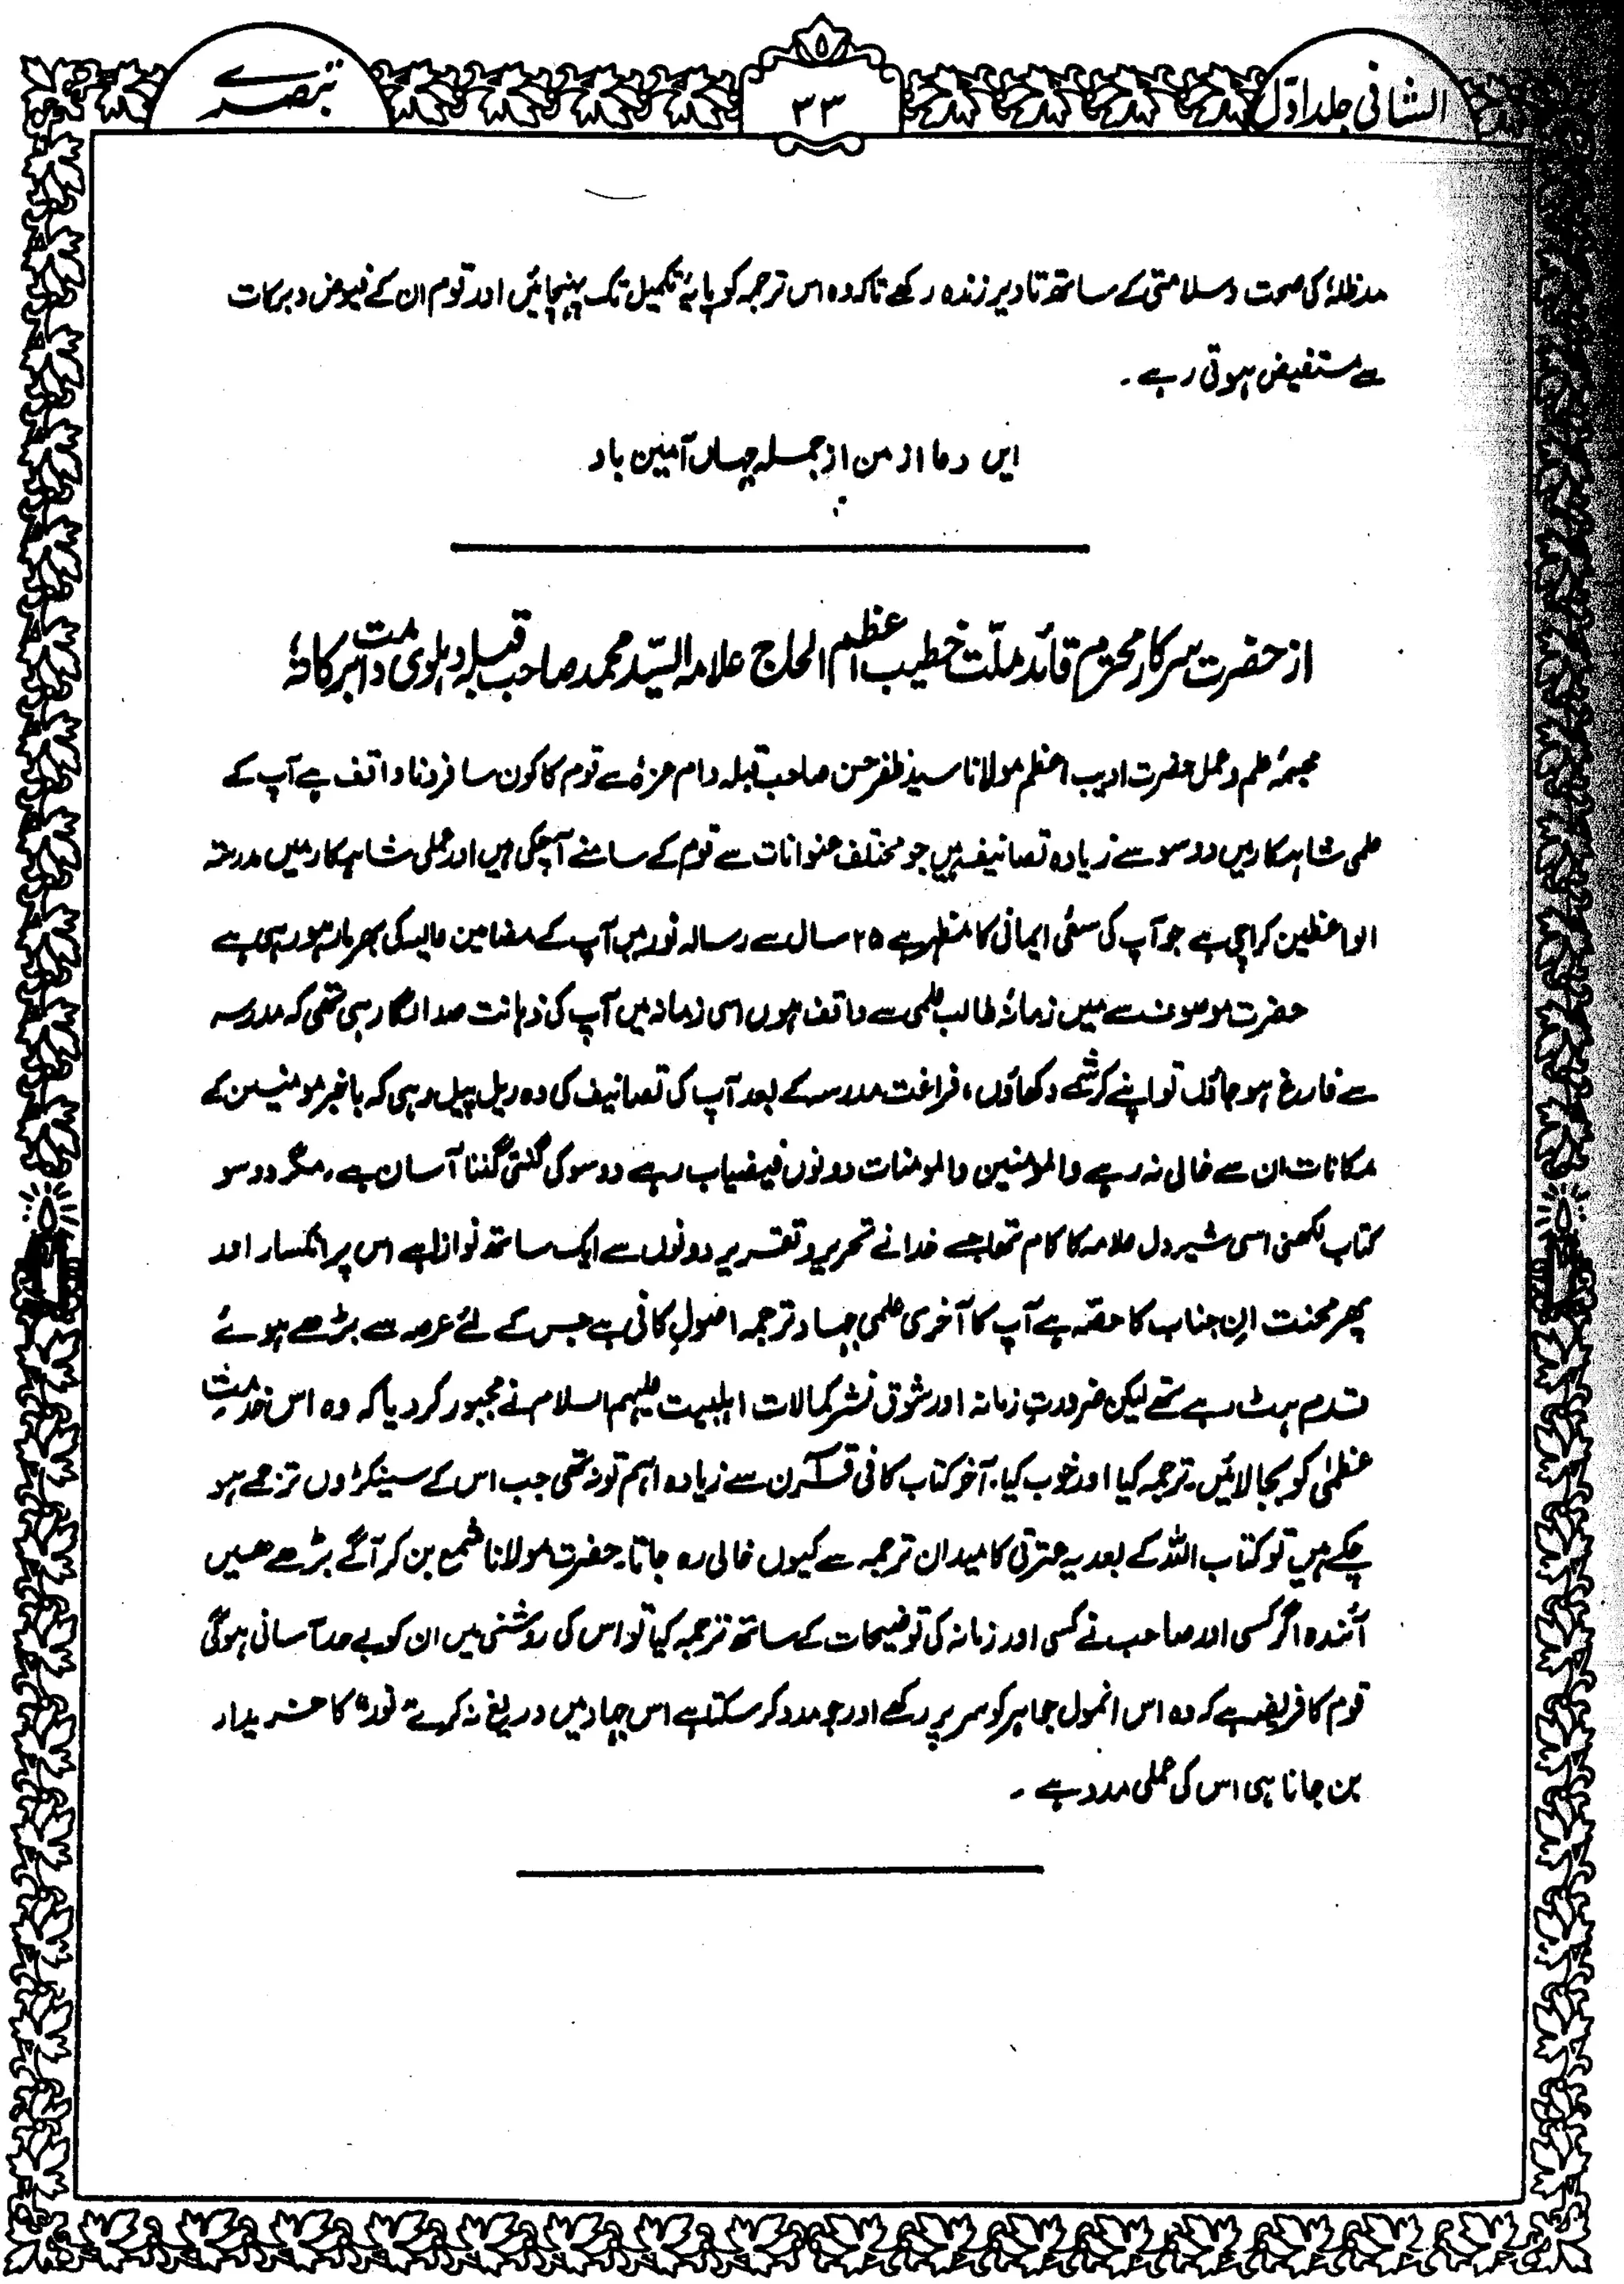 الشافی جلد اوّل
۳۳
تبصرے
مدظلہٗ کی صحت و سلامتی کے ساتھ تا دیر زندہ رکھے تاکہ وہ اس ترجمہ کو پایۂ تکمیل تک پہنچائیں اور قوم ان کے فیوض و برکات
سے مستفیض ہوتی رہے ۔
ایں دعا از من از جملہ جہاں آمین باد
از حضرت سرکار محترم قائد ملّت خطیب اعظم الحاج علامہ السیّد محمد صاحب قبلہ دہلوی دامت برکاتہٗ
مجسمۂ علم و عمل حضرت ادیب اعظم مولانا سید ظفر حسن صاحب قبلہ دام عزہٗ سے قوم کا کون سا فرد ناواقف ہے آپ کے
علمی شاہکار میں دو سو سے زیادہ تصانیف ہیں جو مختلف عنوانات سے قوم کے سامنے آچکی ہیں اور عملی شاہکار میں مدرستہ
الواعظین کراچی ہے جو آپ کی سعئی ایمانی کا مظہر ہے ۲۵ سال سے رسالہ نور میں آپ کے مضامین عالیہ کی بھرمار ہو رہی ہے
حضرت موصوف سے میں زمانۂ طالب علمی سے واقف ہوں اسی زمانہ میں آپ کی ذہانت صدا لگا رہی تھی کہ مدرسہ
سے فارغ ہو جاؤں تو اپنے کرشمے دکھاؤں ، فراغت مدرسہ کے بعد آپ کی تصانیف کی وہ ریل پیل رہی کہ باخبر مومنین کے
مکانات ان سے خالی نہ رہے والمومنین والمومنات دونوں فیضیاب رہے دو سو کی گنتی گننا آسان ہے ۔ مگر دو سو
کتاب لکھنی اسی شیر دل علامہ کا کام تھا جسے خدا نے تحریر و تقریر دونوں سے ایک ساتھ نوازا ہے اس پر انکسار اور
پھر محنت ان جناب کا حصّہ ہے آپ کا آخری علمی جہاد ترجمہ اصولِ کافی ہے جس کے لئے عرصہ سے بڑھے ہوئے
قدم ہٹ رہے تھے لیکن ضرورتِ زمانہ اور شوق نشر کمالات اہلبیت علیہم السلام نے مجبور کر دیا کہ وہ اس خدمتِ
عظمٰی کو بجا لائیں ۔ ترجمہ کیا اور خوب کیا ۔ آخر کتاب کافی قرآن سے زیادہ اہم تو نہ تھی جب اس کے سینکڑوں ترجمے ہو
چکے ہیں تو کتاب اللہ کے بعد یہ عترتی کا میدان ترجمہ سے کیوں خالی رہ جاتا ۔ حضرت مولانا شمع بن کر آگے بڑھے ھیں
آئندہ اگر کسی اور صاحب نے کسی اور زمانہ کی توضیحات کے ساتھ ترجمہ کیا تو اس کی روشنی میں ان کو بے حد آسانی ہوگی
قوم کا فریضہ ہے کہ وہ اس انمول جواہر کو سر پر رکھے اور جو مدد کر سکتا ہے اس جہاد میں دریغ نہ کرے "نور" کا خریدار
بن جانا ہی اس کی عملی مدد ہے ۔